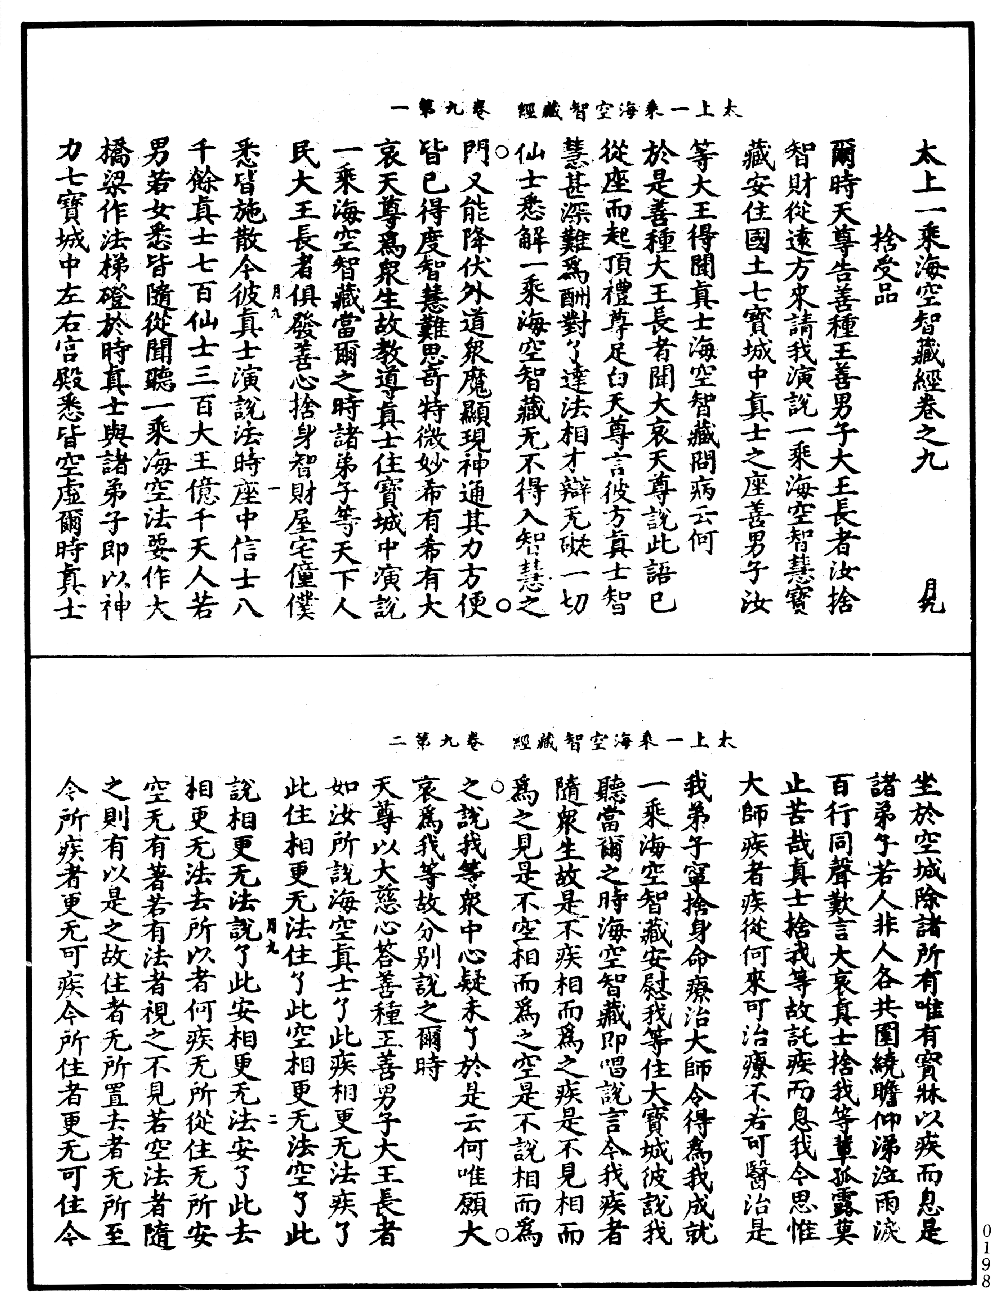 太上一乘海空智藏經　卷九第一
太上一乘海空智藏經卷之九　月九
捨受品
爾時天尊告善種王善男子大王長者汝捨
智財從遠方來請我演說一乘海空智慧寶
藏安住國土七寶城中真士之座善男子汝
等大王得聞真士海空智藏問病云何
於是善種大王長者聞大哀天尊說此語已
從座而起頂禮尊足白天尊言彼方真士智
慧甚深難為酬對了達法相才辯无礙一切
仙士悉解一乘海空智藏无不得入智慧之
門又能降伏外道眾魔顯現神通其力方便
皆已得度智慧難思奇特微妙希有希有大
哀天尊為眾生故教導真士住寶城中演說
一乘海空智藏當爾之時諸弟子等天下人
民大王長者俱發善心捨身智財屋宅僮僕
月九　一
悉皆施散今彼真士演說法時座中信士八
千餘真士七百仙士三百大王億千天人若
男若女悉皆隨從聞聽一乘海空法要作大
橋梁作法梯磴於時真士與諸弟子即以神
力七寶城中左右宮殿悉皆空虛爾時真士
太上一乘海空智藏經　卷九第二
坐於空城除諸所有唯有寶牀以疾而息是
諸弟子若人非人各共圍繞瞻仰涕泣雨淚
百行同聲歎言大哀真士捨我等輩孤露莫
止苦哉真士捨我等故託疾而息我今思惟
大師疾者疾從何來可治療不若可醫治是
我弟子寧捨身命療治大師令得為我成就
一乘海空智藏安慰我等住大寶城彼說我
聽當爾之時海空智藏即唱說言今我疾者
隨眾生故是不疾相而為之疾是不見相而
為之見是不空相而為之空是不說相而為
之說我等眾中心疑未了於是云何唯願大
哀為我等故分別說之爾時
天尊以大慈心荅善種王善男子大王長者
如汝所說海空真士了此疾相更无法疾了
此住相更无法住了此空相更无法空了此
月九　二
說相更无法說了此安相更无法安了此去
相更无法去所以者何疾无所從住无所安
空无有著若有法者視之不見若空法者隨
之則有以是之故住者无所置去者无所至
令所疾者更无可疾今所住者更无可住今
0198